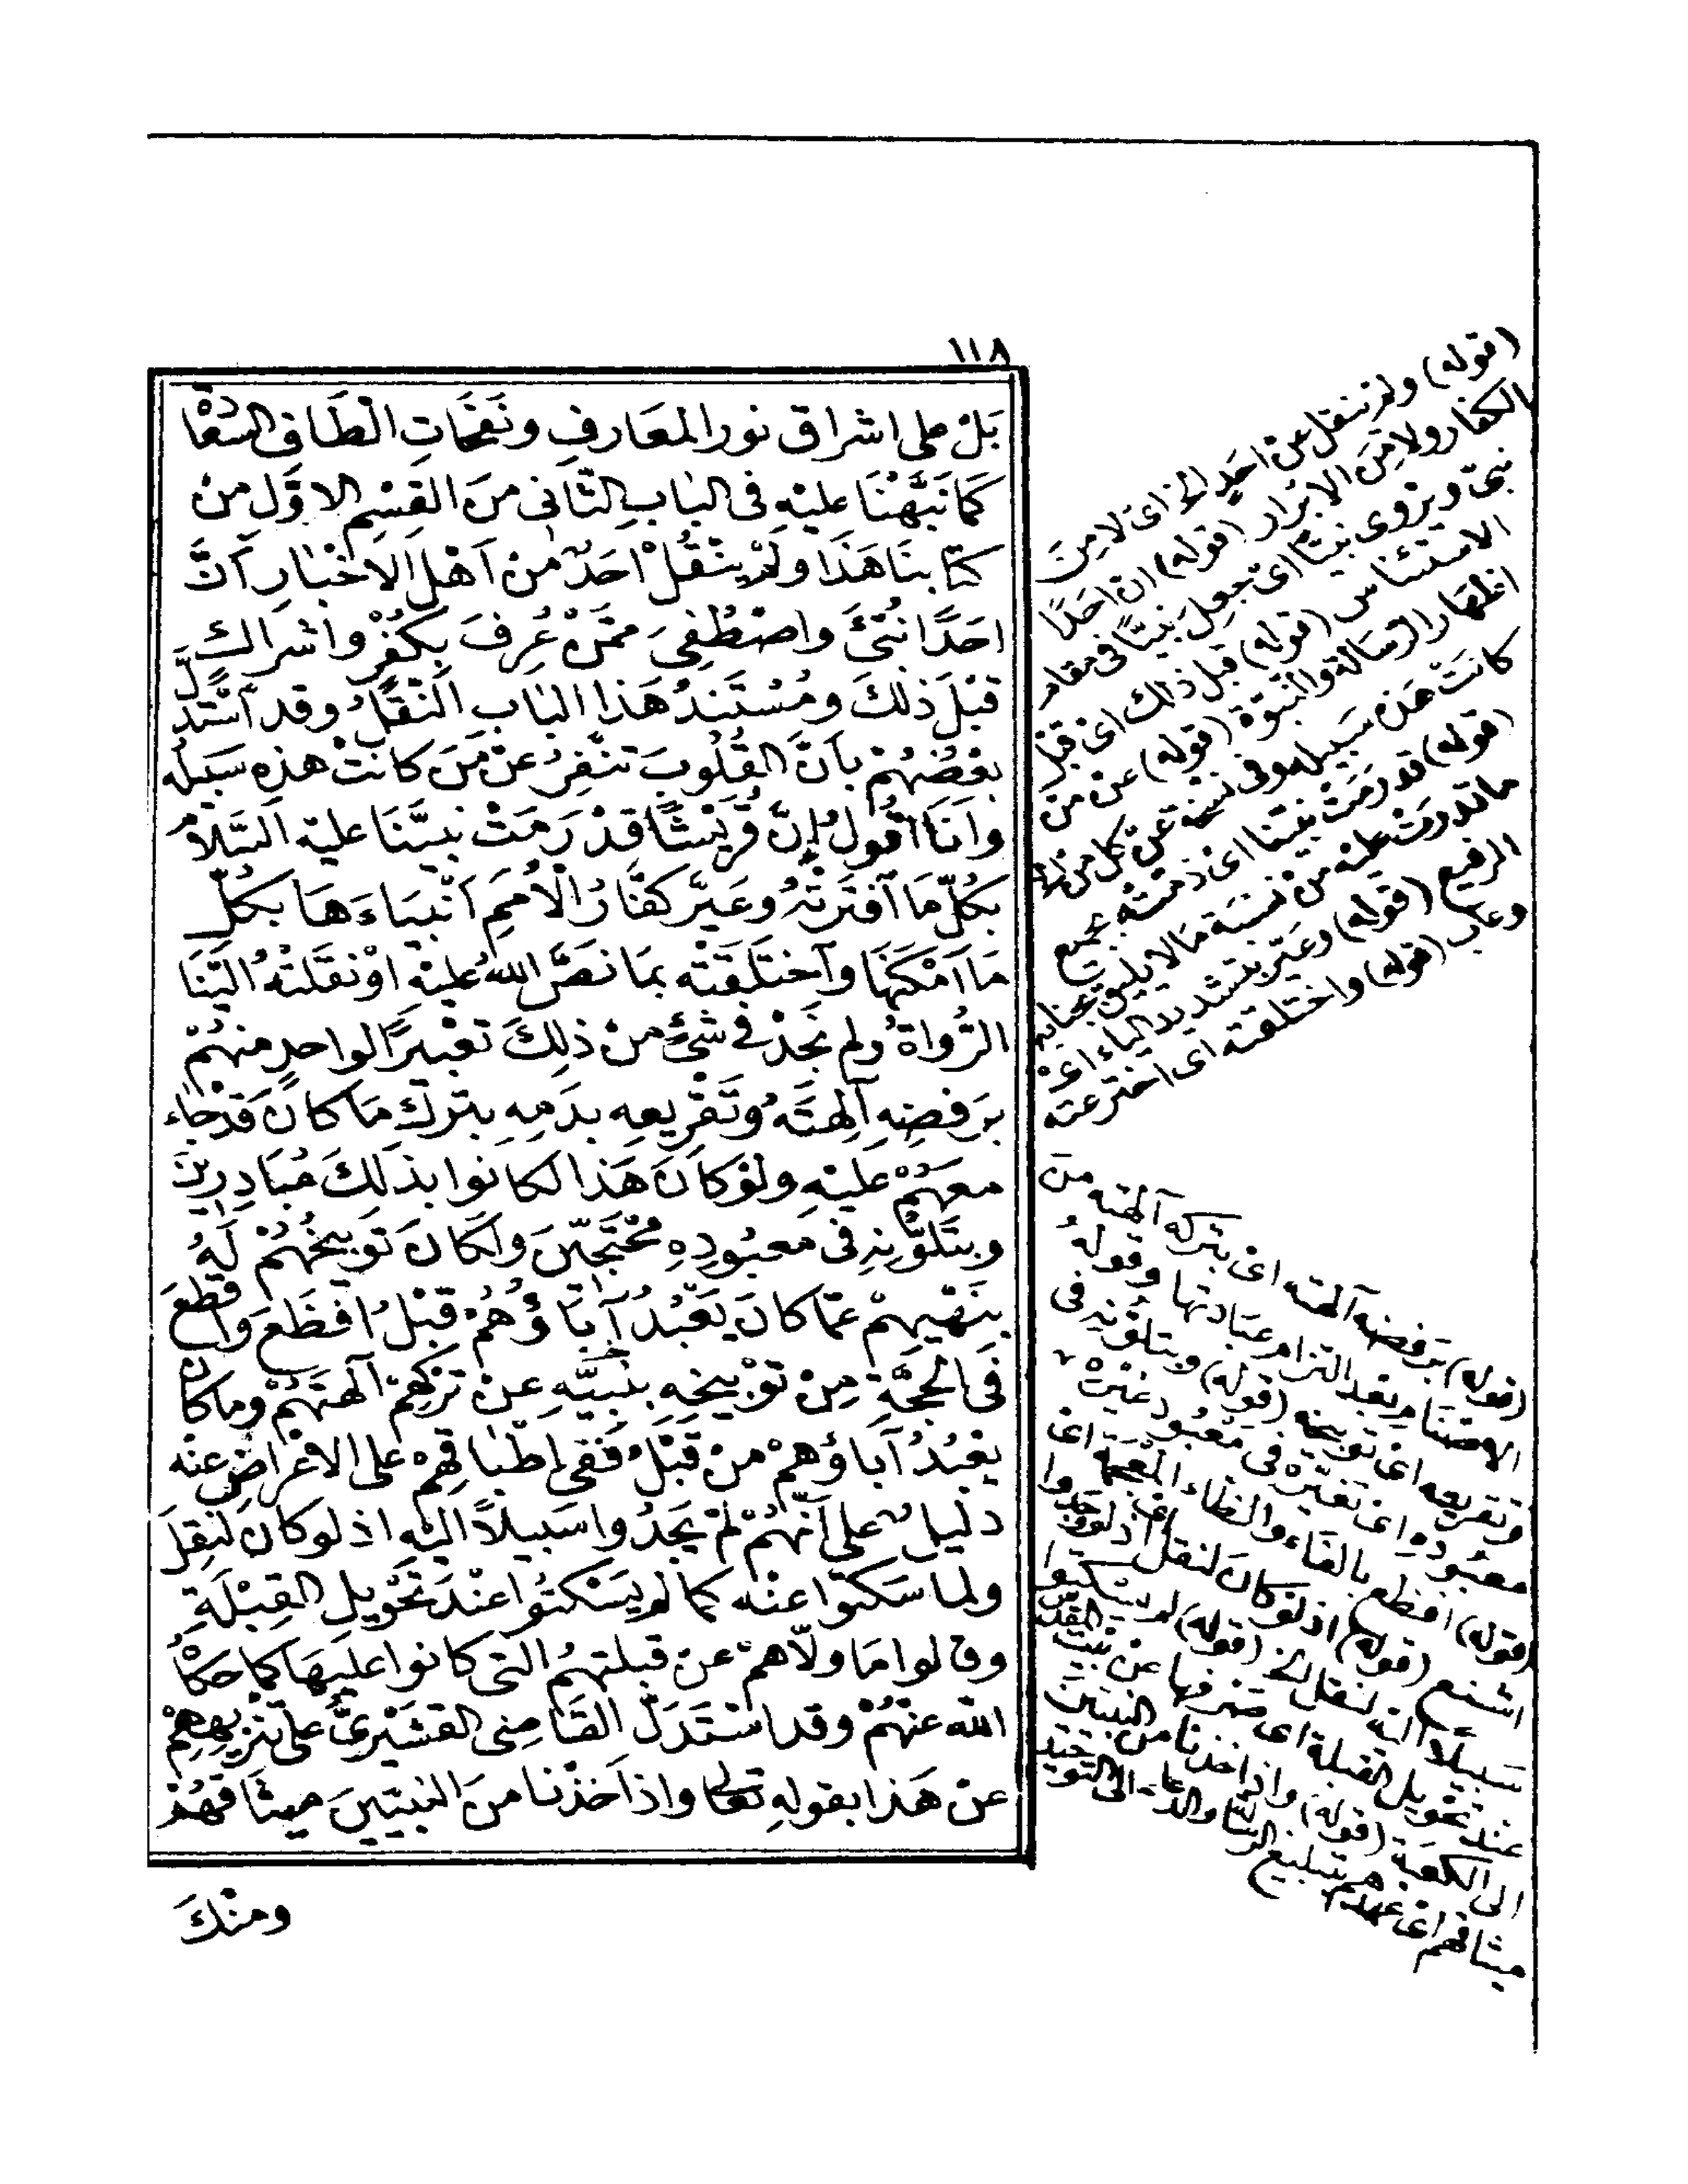 ١١٨
بَلْ على اشراق نور المَعَارفِ ونَفَحَاتِ الْطَافِ السَّعَادَة
كَمَا نَبَّهْنَا عليْهِ فى البابِ الثَّانى مِنَ القِسْمِ الاوّل من
كتابنا هَذَا ولَمْ يَنْقُلْ احَدٌ من اَهْلِ الاخْبارِ اَنَّ
احَدًا نُبِّئَ واصْطُفِىَ مِمَّنْ عُرِفَ بِكُفْرٍ واشراك
قَبْلَ ذلكَ ومُسْتَندُ هَذا البابِ النَّقْلُ وقد اسْتَدَلَّ
بعْضُهُمْ بأنَّ القُلُوبَ تنْفِرُ عنْ مَنْ كانتْ هذهِ سَبيلُه
وَانَا اقُولُ إنَّ قُرَيْشًا قدْ رَمَتْ نبيَّنَا عليه السَّلامُ
بكُلّ مَا اَفْتَرَتْهُ وعَيَّرَ كفَّارُ الْاُمَمِ اَنْبيَاءَهَا بكُلِّ
مَا اَمْكَنَهَا واَختَلَقَتْه بمَا نَصَّ اللهُ عليْهِ اوْ نَقَلَتْهُ الَيْنَا
الرُّوَاةُ ولم نجَدْ فى شَىْءٍ منْ ذلكَ تَعْييرًا لواحدٍ منهُمْ
بَرَفضِهِ آلِهتَهُ وتَقْريعِه بذمِه بتَرْكِ مَا كانَ قَدْ جَاءَ
معَهُمْ عليْهِ ولوْ كانَ هَذا لكانوا بذلكَ مُبَادِرِينَ
وبتَلَوُّنِهِ فى معبُودِهِ مُحْتَجّينَ ولَكَانَ تَوْبيخُهُمْ لَهُ
بنَهْيِهِمْ عمّا كانَ يَعْبُدُ آبَاؤُهُمْ قَبْلُ افْظَعَ واَقْطَعَ
فى الحُجَّةِ مِنْ تَوْبيخِهِ بنَهْيِهِ عنْ تَرْكِهِمْ آلهتَهُمْ وما كانَ
يعْبُدُ آباؤُهمْ منْ قَبْلُ فَفى إِطْبَاقِهِمْ على الاعْرَاضِ عنْه
دليلٌ على اَنَّهُمْ لمْ يَجِدُوا سَبيلاً اليْهِ اذ لو كانَ لنُقِلَ
ولما سَكتوا عنْه كما لم يَسْكتُوا عنْدَ تَحْوِيلِ القِبْلَةِ
وقالوا مَا ولّاهمْ عن قبلتِهمُ التى كانوا عليْهَا كما حكاهُ
الله عنْهُمْ وقد اسْتَدَلَّ القَاضى القشَيْرِىُّ على تَنْزيهِهِمْ
عنْ هَذا بقولهِ تعالى واذ اَخَذْنا منَ النبيّينَ ميثَاقَهُمْ
ومنْكَ
(قوله) ولم ينقل عن احد الخ اى لا من
الكفار ولا من الابرار (قوله) ان احدًا
نبئ ويروى نبيّا اى جعل نبيّا فى مقام
الاستئناس (قوله) قبل ذلك اى قبل
اظهار الرسالة والنبوّة (قوله) عن من
كانت هذه سبيله وفى نسخة عن كل من
(قوله) قد رمت نبيّنا اى ذمته بجميع
ما قدرت عليه من نسبة ما لا يليق بجنابه
الرفيع (قوله) وعيّر بتشديد الياء اى
وعاب (قوله) واختلقته اى اخترعته
(قوله) برفضه آلهته اى بتركه آلهته من
الاصنام بعد التزام عبادتها وقوله
وتقريعه اى توبيخه (قوله) وبتلوّنه فى
معبوده اى تغيّره فى معبود غيره
(قوله) افظع بالفاء والظاء المعجمة اى
اشنع (قوله) اذ لو كان لنقل اى لو وجدوا
سبيلًا اليه لنقل الخ (قوله) لم يسكتوا
عند تحويل القبلة اى صرفها عن بيت المقدس
الى الكعبة (قوله) واذ اخذنا من النبيين
ميثاقهم اى عهدهم بتبليغ الرسالة والدعاء الى التوحيد